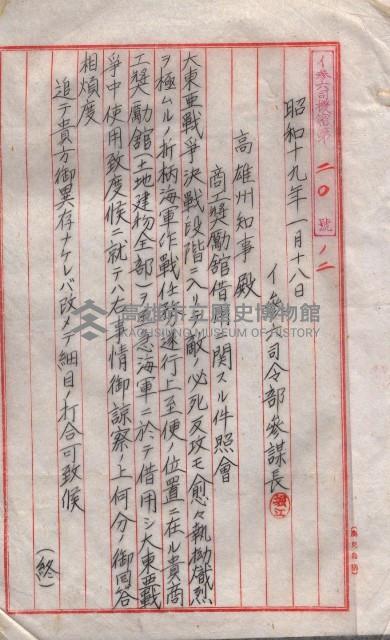 イ参六司機密第二〇號ノ二
昭和十九年一月十八日
イ参六司令部参謀長
堀江
高雄州知事殿
商工奨勵館借用ニ関スル件照會
大東亜戦争決戦段階ニ入リ敵ノ必死反攻モ愈々執拗熾烈
ヲ極ムルノ折柄海軍作戦任務遂行上至便ノ位置ニ在ル貴商
工奨勵館(土地建物全部)ヲ急海軍ニ於テ借用シ大東亜戦
争中使用致度候ニ就テハ右事情御諒察ノ上何分ノ御回答
相煩度
追テ貴方御異存ナケレバ改メテ細目ノ打合可致候
(終)
高雄市立歷史博物館
KAOHSIUNG MUSEUM OF HISTORY